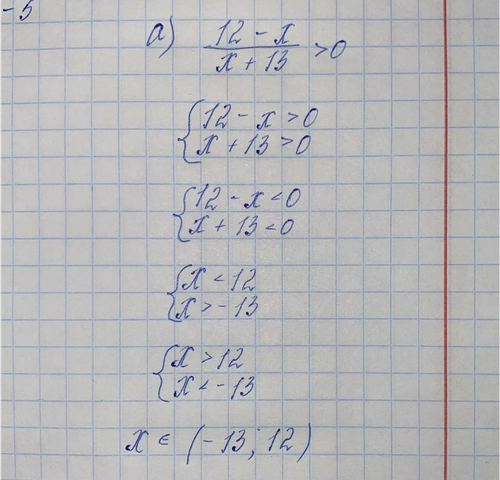 -5
а) (12 - x)/(x + 13) > 0
{12 - x > 0
x + 13 > 0
{12 - x < 0
x + 13 < 0
{x < 12
x > -13
{x > 12
x < -13
x ∈ (-13; 12)